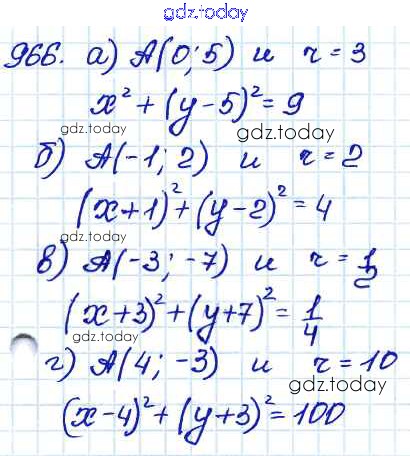 gdz.today
966. а) A(0; 5) и r = 3
x² + (y - 5)² = 9
gdz.today
gdz.today
б) A(-1; 2) и r = 2
(x+1)² + (y-2)² = 4
gdz.today
в) A(-3; -7) и r = 1/2
(x+3)² + (y+7)² = 1/4
г) A(4; -3) и r = 10
gdz.today
gdz.today
(x-4)² + (y+3)² = 100